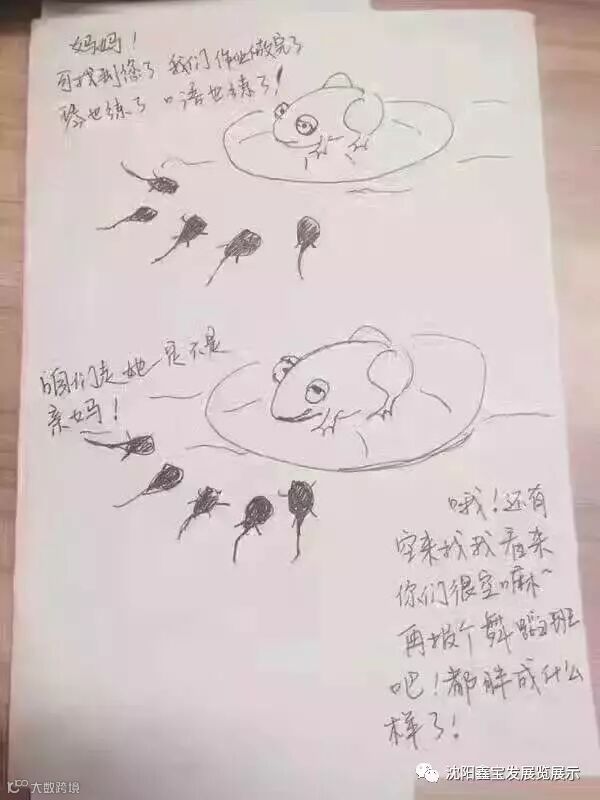 妈妈!
可找到您了 我们作业做完了
琴也练了 口语也练了!
咱们走 她一定不是
亲妈!
哦!还有
空来找我 看来
你们很空嘛~
再报个舞蹈班
吧!都胖成什么
样了!
大数跨境
沈阳鑫宝发展览展示